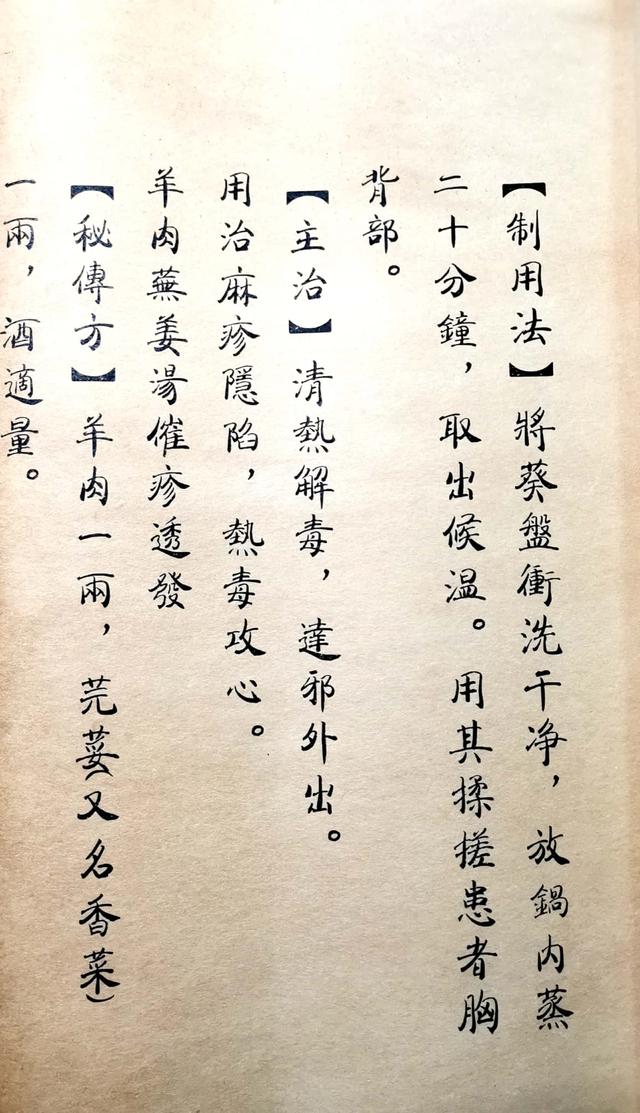 【制用法】將葵盤衝洗干净，放鍋内蒸
二十分鐘，取出候温。用其揉搓患者胸
背部。
【主治】清熱解毒，達邪外出。
用治麻疹隱陷，熱毒攻心。
羊肉蕪姜湯催疹透發
【秘傳方】羊肉一兩，芫荽(又名香菜)
一兩，酒適量。